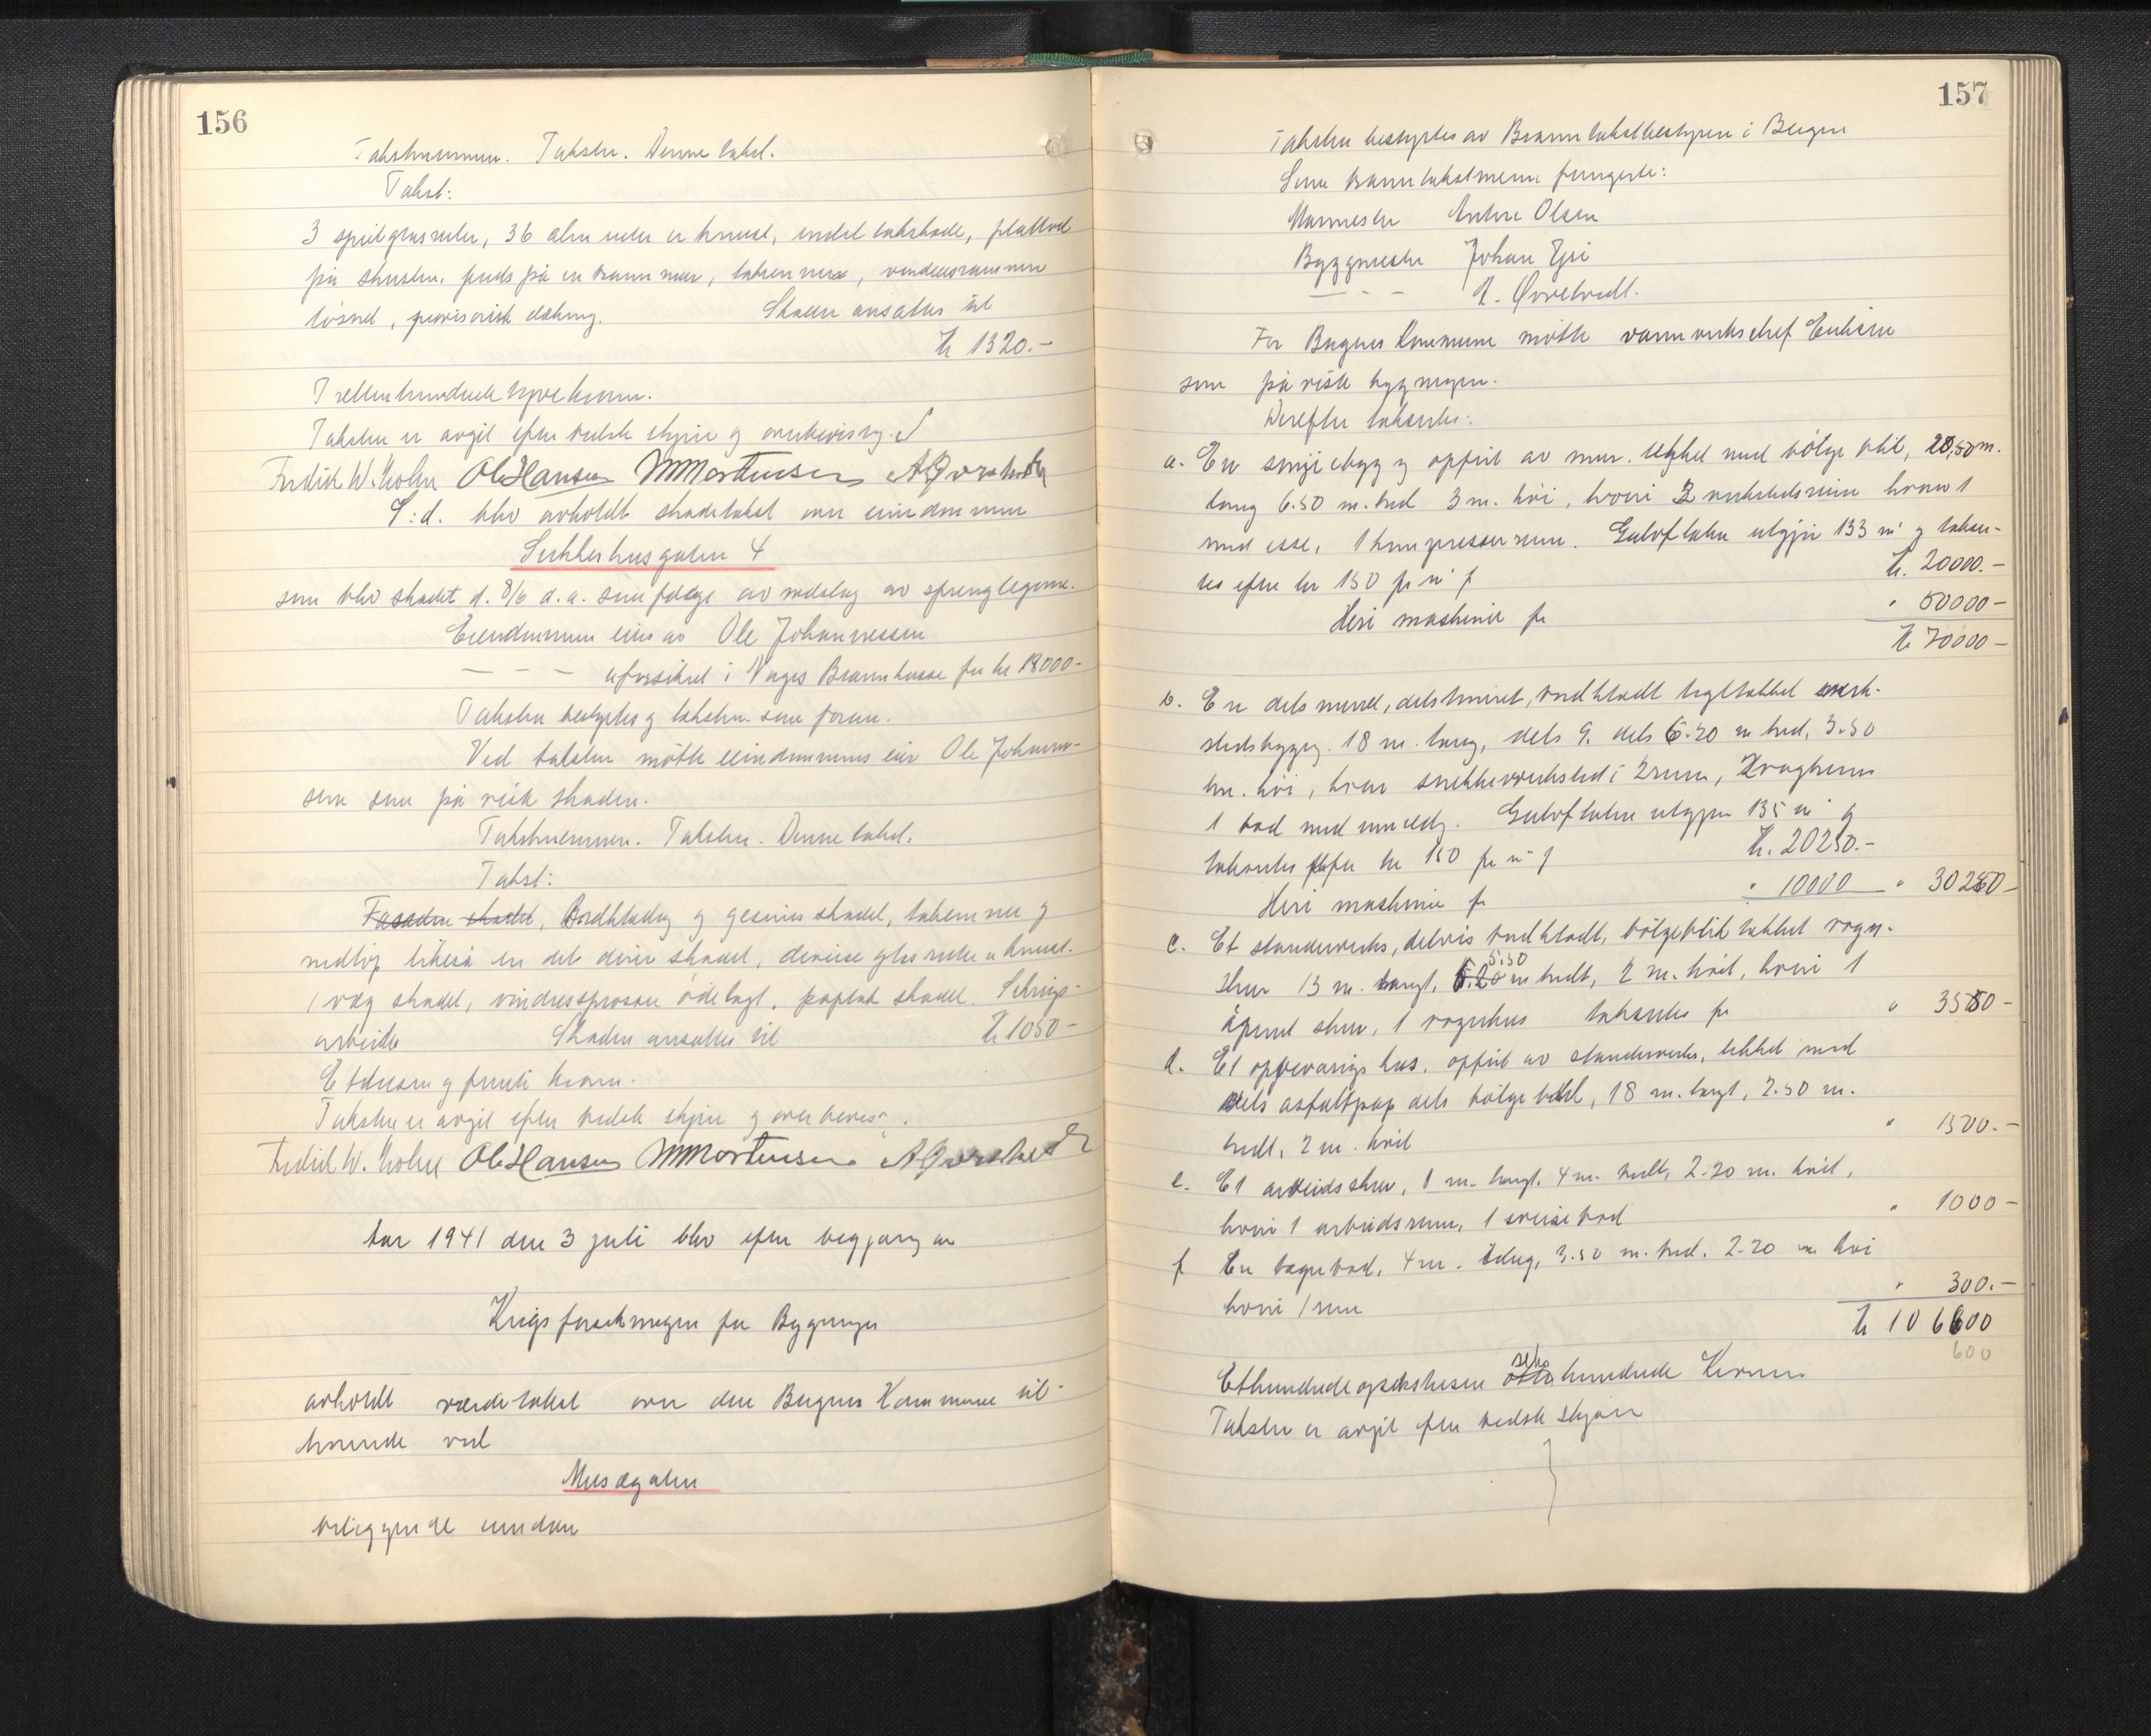 156
Takstnemnen. Taksten. Denne takst.
Takst:
3 speilglasruter, 36 alm ruter er knust, endel takskade, plattad
på skusten, puds på en brannmur, takrenner, vinduesrammen
løsnet, provisorisk dekning. Skaden ansattes til
Kr 1320.-
Trettenhundrede tyve kroner.
Taksten er avgit efter bedste skjøn og overbevisning.
Fredrik W. Holm Ole Hansen M Mortensen
S: d. blev avholdt skadetakst over eiendommen
Sukkerhusgaten 4
som blev skadet d. 8/6 d. a. som følge av nedslag av sprenglegeme.
Eiendommen eies av Ole Johannessen
— — — er forsikret i Norges Brannkasse for kr 18000-
Taksten bestyrtes og taksten som foran.
Ved taksten møtte eiendommens eier Ole Johannes-
sen som på viste skaden.
Takstnemnen. Taksten. Denne takst.
Takst:
Fasaden skadet, Bordklædning og gesimser skadet, takrenner og
nedløp likeså en del dører skadet, diverse glasruter er knust.
1 væg skadet, vinduessprosser ødelagt, paptak skadet. Stillings-
arbeide Skaden ansattes til Kr 1050-
Ettusen og femti kroner.
Taksten er avgit efter bedste skjøn og overbevisn.
Fredrik W. Holm Ole Hansen M Mortensen
Aar 1941 den 3 juli blev efter begjæring av
Krigsforsikringen for Bygninger
avholdt verditakst over den Bergens Kommune til-
hørende ved
Musegaten
beliggende eiendom
157
Taksten bestyrtes av Branntakstbestyreren i Bergen
Som branntakstmenn fungerte:
Murmester Anton Olsen
Byggmester Johan
— - -
For Bergens Kommune møtte vannverkschef
som på viste bygningen.
Derefter taksertes:
a. En smijebygg opført av mur, tækket med bølgeblik, 20,50 m.
lang 6.50 m. bred 3 m. høi, hvori 2 verkstedsrum hvorav 1
med esse, 1 kompressorrum. Gulvflaten utgjør 133 m² og takser-
tes efter kr 150 pr m² Kr. 20000.-
Heri maskiner for " 50000-
Kr 70000-
b. En dels muret, dels tømret, bordklædt tegltækket verk-
stedsbygn. 18 m. lang, dels 9. dels 6.20 m bred, 3.50
m. høi, hvor snekkerverksted i 2 rum,
1 bod med innredn. Gulvflaten utgjør 135 m² og
takseres for kr 150 pr m² Kr. 20250.-
Heri maskiner for " 10000 " 30250-
c. Et standerverks, delvis bordklædt, bølgeblik tækket vogn-
skur 13 m. langt, 6.20 5.50 m bredt, 2 m. høit, hvori 1
åpent skur, 1 vognhus takseres for " 3550-
d. Et opbevarings hus, opført av standerverk, tekket med
dels asfaltpap dels bølgeblikk, 18 m. langt, 2.50 m.
bredt, 2 m. høit " 1500.-
e. Et arbeidsskur, 1 m. langt, 4 m. bredt, 2.20 m. høit,
hvori 1 arbeidsrum, 1 sveisebod " 1000-
f En lagerbod, 4 m. lang, 3.50 m. bred, 2.20 m. høi
hvori 1 rum " 300.-
Kr 106600
600
Ethundredeogsekstusen otte seks hundrede Kroner
Taksten er avgit efter bedste skjøn